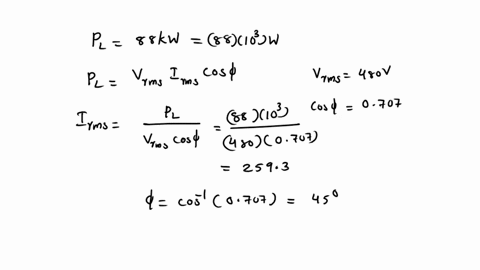 P_L = 88kW = (88)(10³)W
P_L = V_rms I_rms cosϕ
V_rms = 480V
I_rms = P_L / (V_rms cosϕ) = (88)(10³) / (480)(0.707)
cosϕ = 0.707
= 259.3
ϕ = cos⁻¹(0.707) = 45°